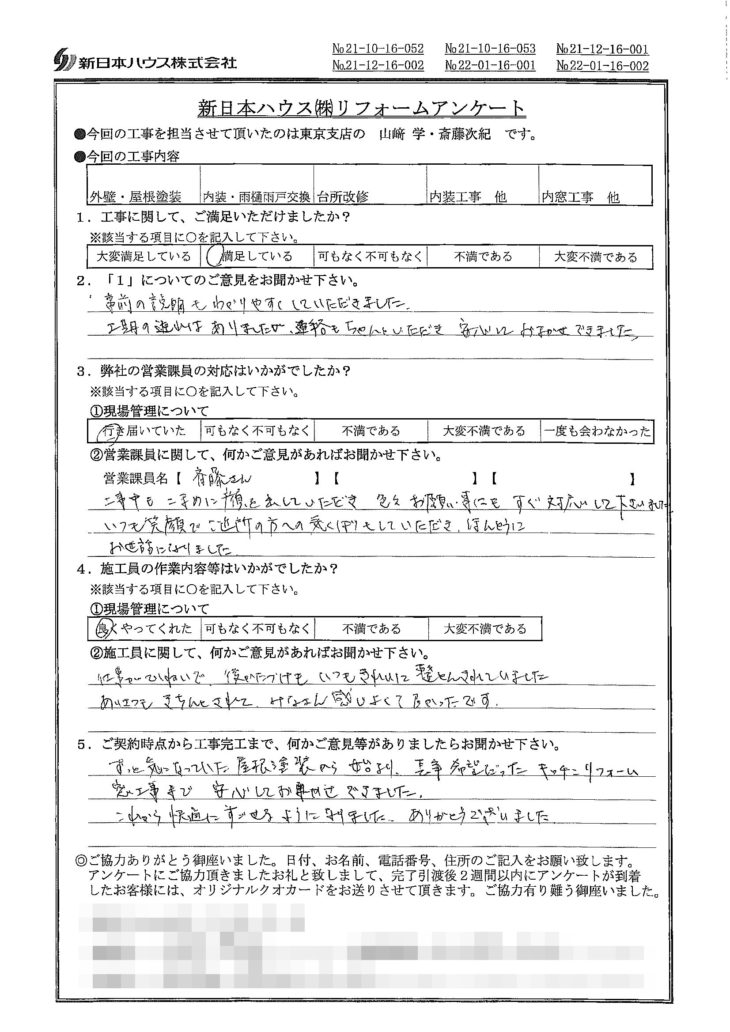 新日本ハウス株式会社
№21-10-16-052 №21-10-16-053 №21-12-16-001
№21-12-16-002 №22-01-16-001 №22-01-16-002
新日本ハウス㈱リフォームアンケート
●今回の工事を担当させて頂いたのは東京支店の 山﨑 学・斎藤次紀 です。
●今回の工事内容
外壁・屋根塗装 内装・雨樋雨戸交換 台所改修 内装工事 他 内窓工事 他
1．工事に関して、ご満足いただけましたか？
※該当する項目に○を記入して下さい。
大変満足している 満足している 可もなく不可もなく 不満である 大変不満である
2．「1」についてのご意見をお聞かせ下さい。
事前の説明もわかりやすくしていただきました。
工期の遅れはありましたが、連絡もちゃんといただき 安心して おまかせできました。
3．弊社の営業課員の対応はいかがでしたか？
※該当する項目に○を記入して下さい。
①現場管理について
行き届いていた 可もなく不可もなく 不満である 大変不満である 一度も会わなかった
②営業課員に関して、何かご意見があればお聞かせ下さい。
営業課員名【 斉藤さん 】【 】【 】
工事中も こまめに顔を出していただき 色々お願い事にも すぐ対応して下さいました
いつも笑顔で ご近所の方への気くばりもしていただき、ほんとうに
お世話になりました
4．施工員の作業内容等はいかがでしたか？
※該当する項目に○を記入して下さい。
①現場管理について
良くやってくれた 可もなく不可もなく 不満である 大変不満である
②施工員に関して、何かご意見があればお聞かせ下さい。
仕事がていねいで、後かたづけも いつもきれいに 整とんされていました
あいさつも きちんとされて、みなさん感じよくて良かったです。
5．ご契約時点から工事完工まで、何かご意見等がありましたらお聞かせ下さい。
ずっと気になっていた屋根塗装から 始まり、長年 希望だった キッチンリフォーム
窓工事まで 安心しておまかせできました。
これから快適にすごせるようになりました。ありがとうございました
◎ご協力ありがとう御座いました。日付、お名前、電話番号、住所のご記入をお願い致します。
アンケートにご協力頂きましたお礼と致しまして、完了引渡後２週間以内にアンケートが到着
したお客様には、オリジナルクオカードをお送りさせて頂きます。ご協力有り難う御座いました。